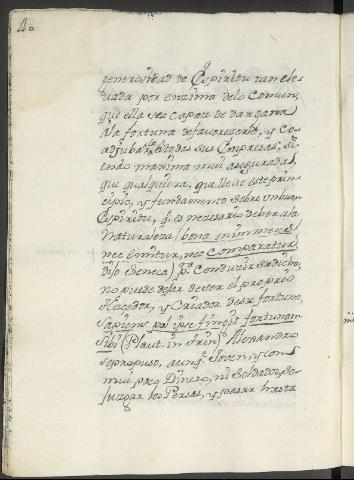 40
generosidad de Espiritu tan ele
vada por enzima de lo Comun,
que ella sea capaz de dar gana
a la fortuna de favorezerle, y Co
adjubarle en todas sus Empresas, si
endo maxima mui asegurada,
que qualquiera, que lleve este prin
cipio, y fundamento sobre un buen
Espiritu, q. es nezesario deber a la
Naturaleza (bona enim mens
nec emitur, nec Comparatur
dijo Seneca) pa. Conduzir su dicha,
no puede dejar de ser el proprio
Hacedor, y Criador de su fortuna,
Sapiens pol ipse fingit fortunam
sibi (Plaut. in Trin) Alexandro
se propuso, aunq. Joven, y con
mui poco Dinero, ni Soldados, So
juzgar los Persas, y pasar hasta